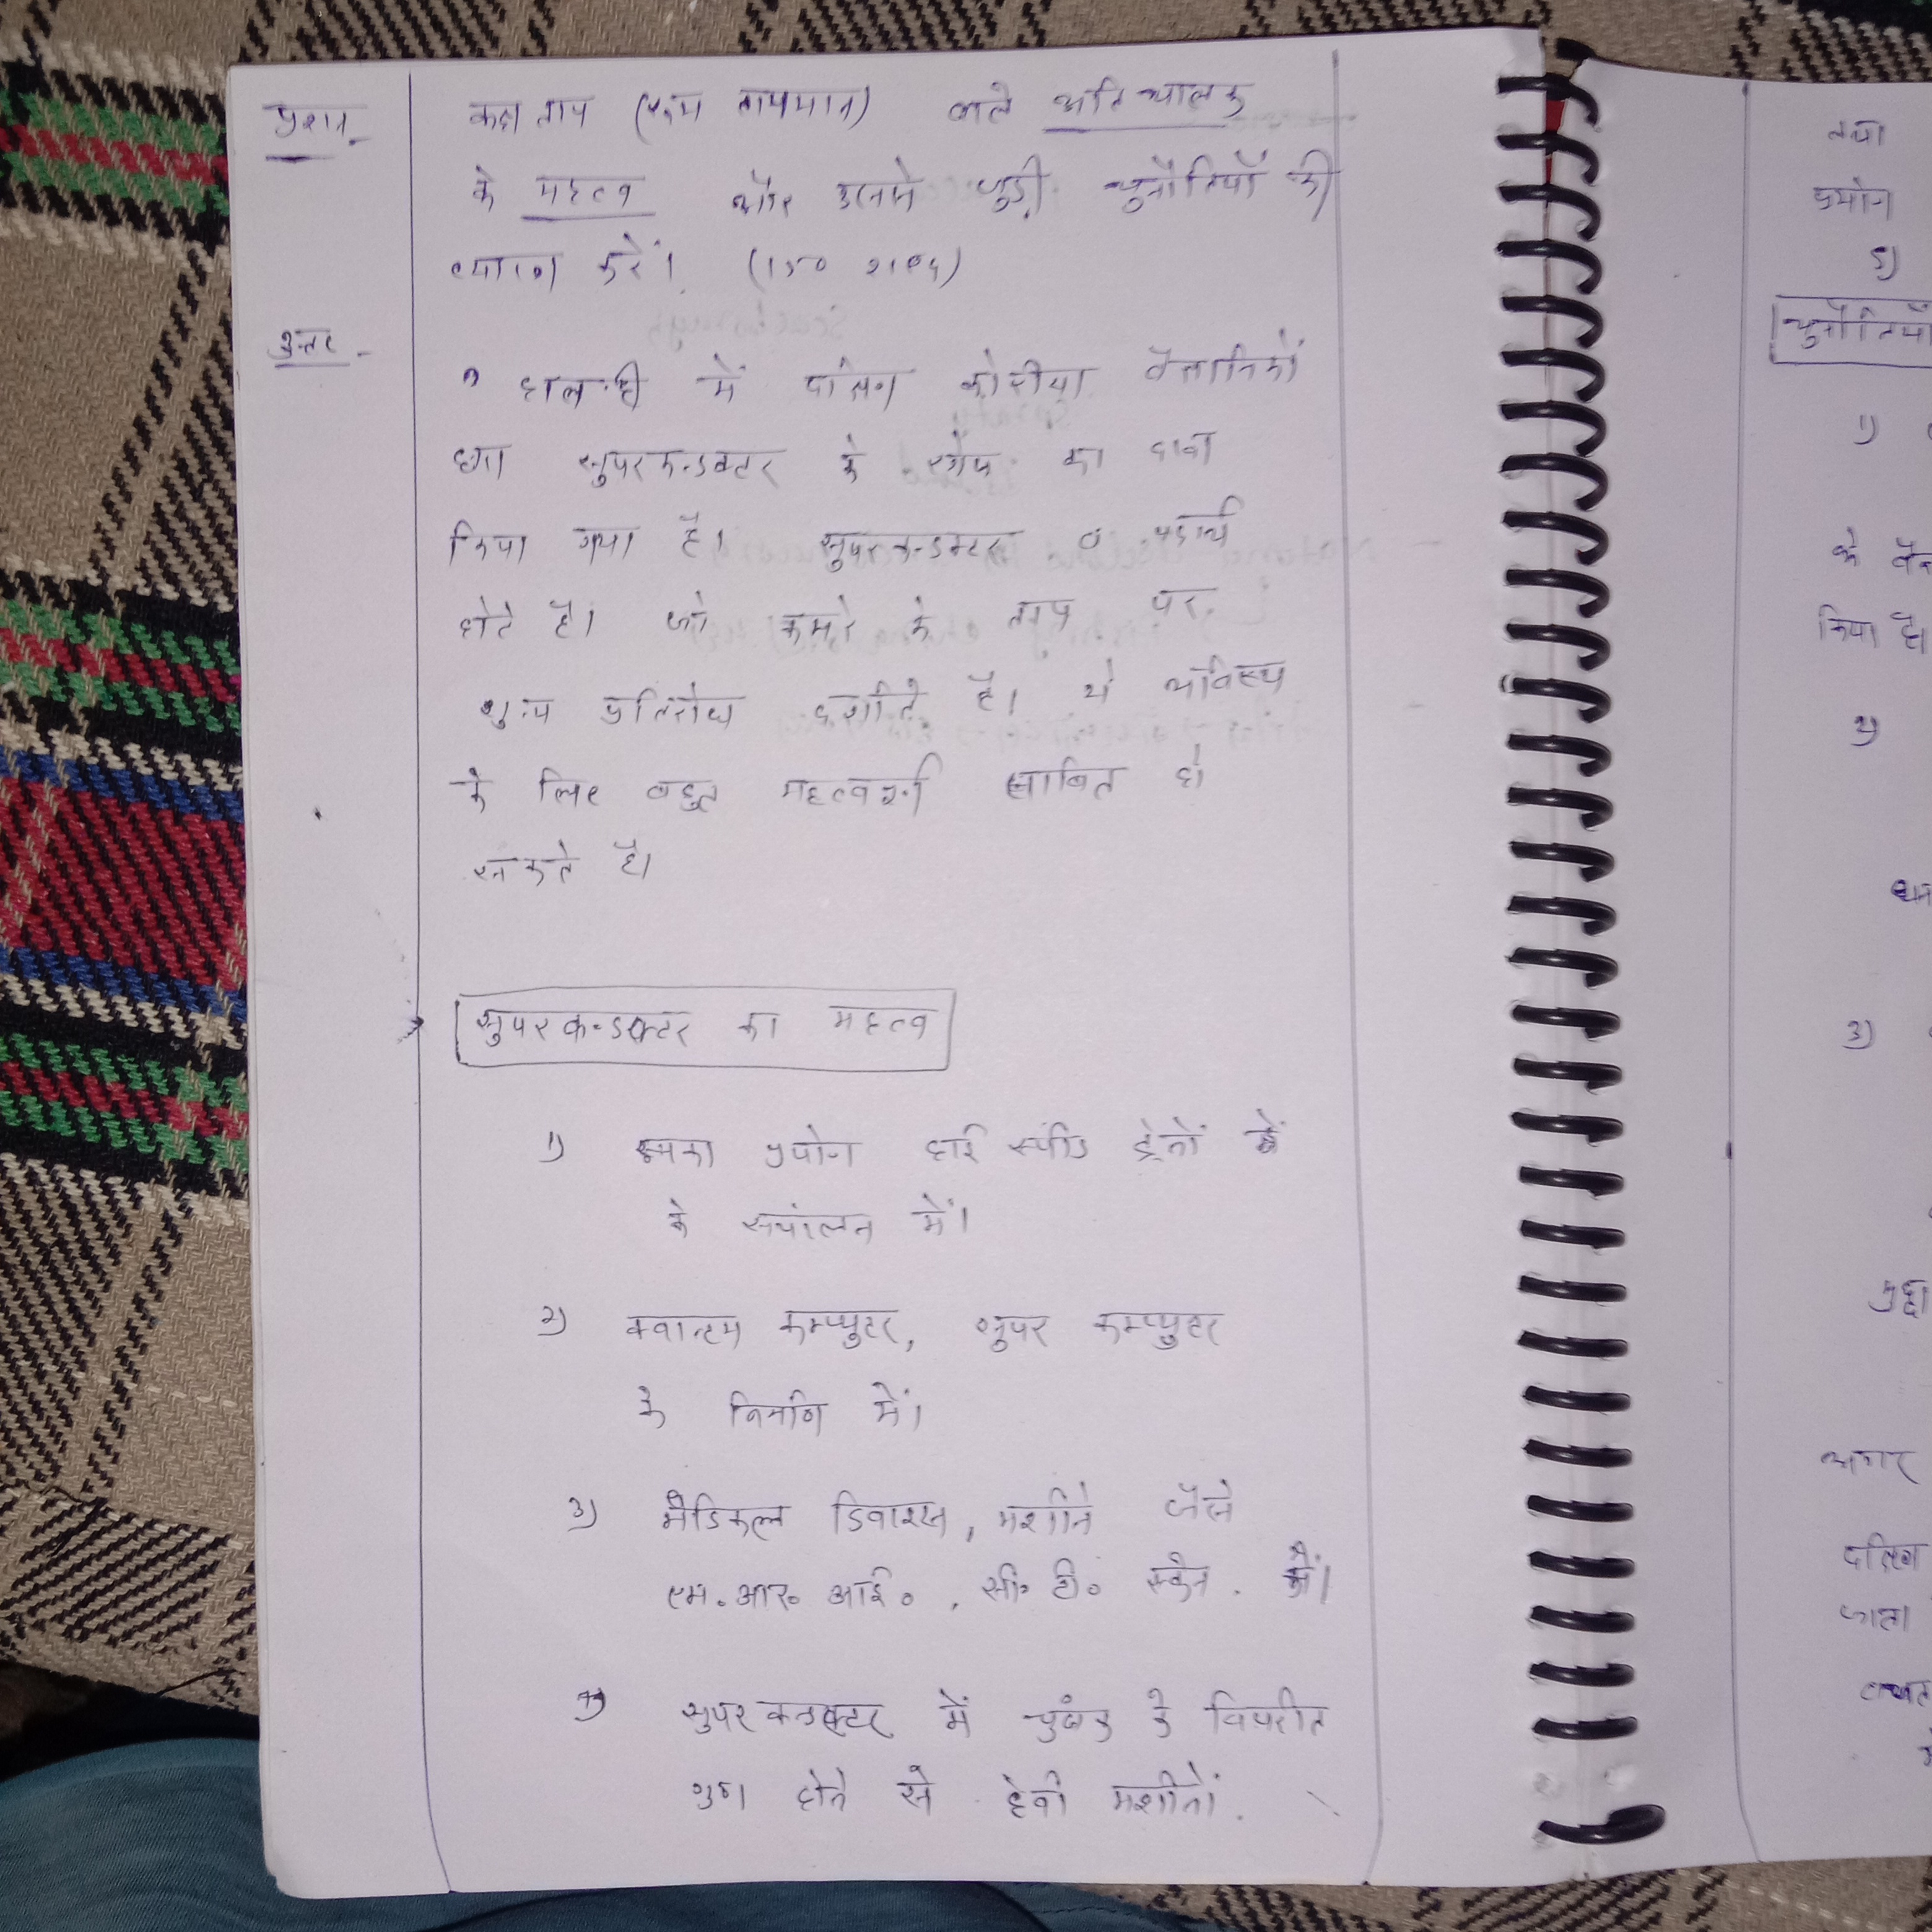 प्रश्न - कक्ष ताप (रूम तापमान) वाले अतिचालक
के महत्व और उनसे जुड़ी चुनौतियों की
व्याख्या करें। (150 शब्द)
उत्तर -
हाल ही में दक्षिण कोरिया वैज्ञानिकों
द्वारा सुपरकन्डक्टर के खोज का दावा
किया गया है। सुपरकन्डक्टर वे पदार्थ
होते है। जो कमरे के ताप पर
शून्य प्रतिरोध दर्शाते है। ये भविष्य
के लिए बहुत महत्वपूर्ण साबित हो
सकते है।
सुपरकन्डक्टर का महत्व
1) इसका प्रयोग हाई स्पीड ट्रेनों
के संचालन में।
2) क्वान्टम कम्प्युटर, सुपर कम्प्युटर
के निर्माण में।
3) मेडिकल डिवाइस, मशीने जैसे
एम.आर.आई., सी.टी. स्केन में।
4) सुपरकन्डक्टर में चुंबक के विपरीत
गुण होने से हेवी मशीनों
तथा
प्रयोग
5)
चुनौतियाँ
1)
के वैज्ञ
किया है।
2)
3)
अगर
दक्षिण
जाता